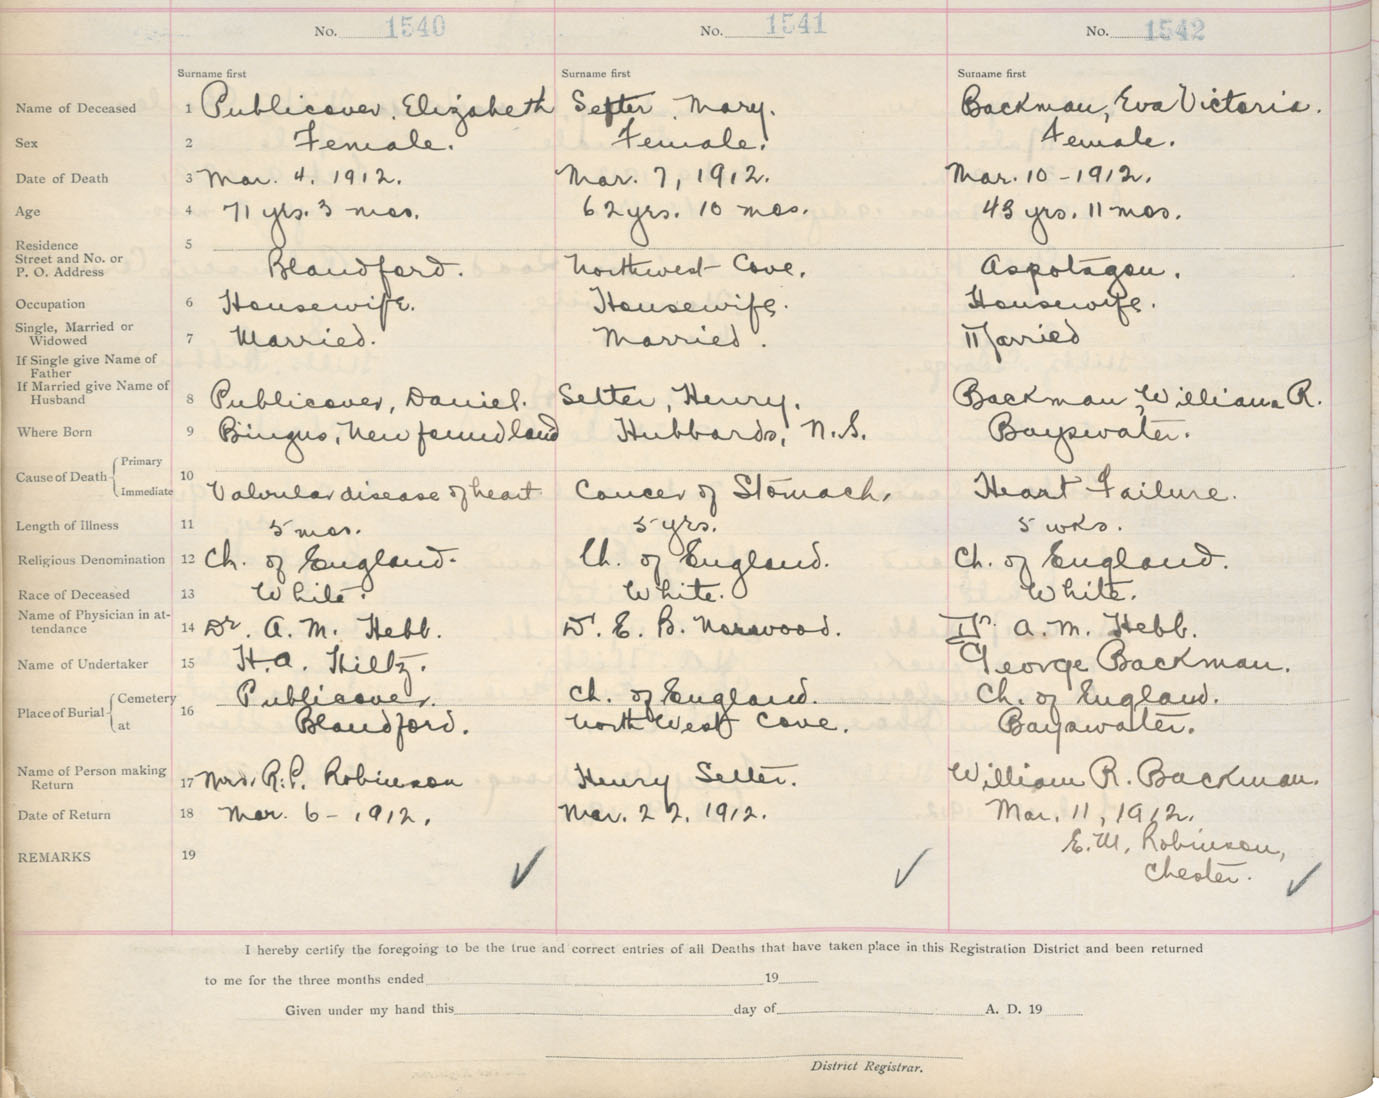 No. 1540 No. 1541 No. 1542
Surname first Surname first Surname first
Name of Deceased 1 Publicover, Elizabeth Setter, Mary. Backman, Eva Victoria.
Sex 2 Female. Female. Female.
Date of Death 3 Mar. 4. 1912. Mar. 7, 1912. Mar. 10 - 1912.
Age 4 71 yrs. 3 mos. 62 yrs. 10 mos. 43 yrs. 11 mos.
Residence 5
Street and No. or
P. O. Address Blandford. Northwest Cove. Aspotagon.
Occupation 6 Housewife. Housewife. Housewife.
Single, Married or
Widowed 7 Married. Married. Married
If Single give Name of
Father
If Married give Name of
Husband 8 Publicover, Daniel. Setter, Henry. Backman, William R.
Where Born 9 Bingus, Newfoundland Hubbards, N.S. Bayswater.
Cause of Death Primary 10
Immediate Valvular disease of heart Cancer of Stomach. Heart Failure.
Length of Illness 11 5 mos. 5 yrs. 5 wks.
Religious Denomination 12 Ch. of England. Ch. of England. Ch. of England.
Race of Deceased 13 White. White. White.
Name of Physician in at-
tendance 14 Dr. A. M. Hebb. Dr. E. B. Norwood. Dr. A. M. Hebb.
Name of Undertaker 15 H. A. Hiltz. George Backman.
Place of Burial Cemetery 16 Publicover. Ch. of England. Ch. of England.
at Blandford. North West Cove. Bayswater.
Name of Person making
Return 17 Mrs. R. P. Robinson Henry Setter. William R. Backman.
Date of Return 18 Mar. 6 - 1912. Mar. 22, 1912. Mar. 11, 1912.
E. M. Robinson,
REMARKS 19
Chester.
I hereby certify the foregoing to be the true and correct entries of all Deaths that have taken place in this Registration District and been returned
to me for the three months ended 19
Given under my hand this day of A. D. 19
District Registrar.